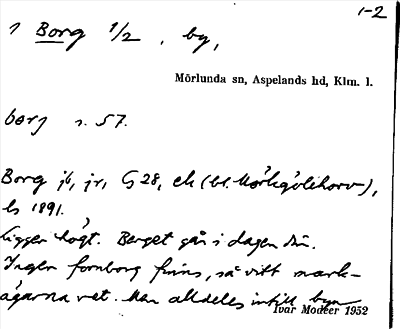 1-2
1 Borg 1/2, by,
Mörlunda sn, Aspelands hd, Klm. l.
borj s. 57.
Borg jb, jr, G 28, ek (bl. Mörkgölehorv),
ls 1891.
Ligger högt. Berget går i dagen
Ingen fornborg finns, så vitt mark-
ägarna vet. Man alldeles intill byn
Ivar Modéer 1952